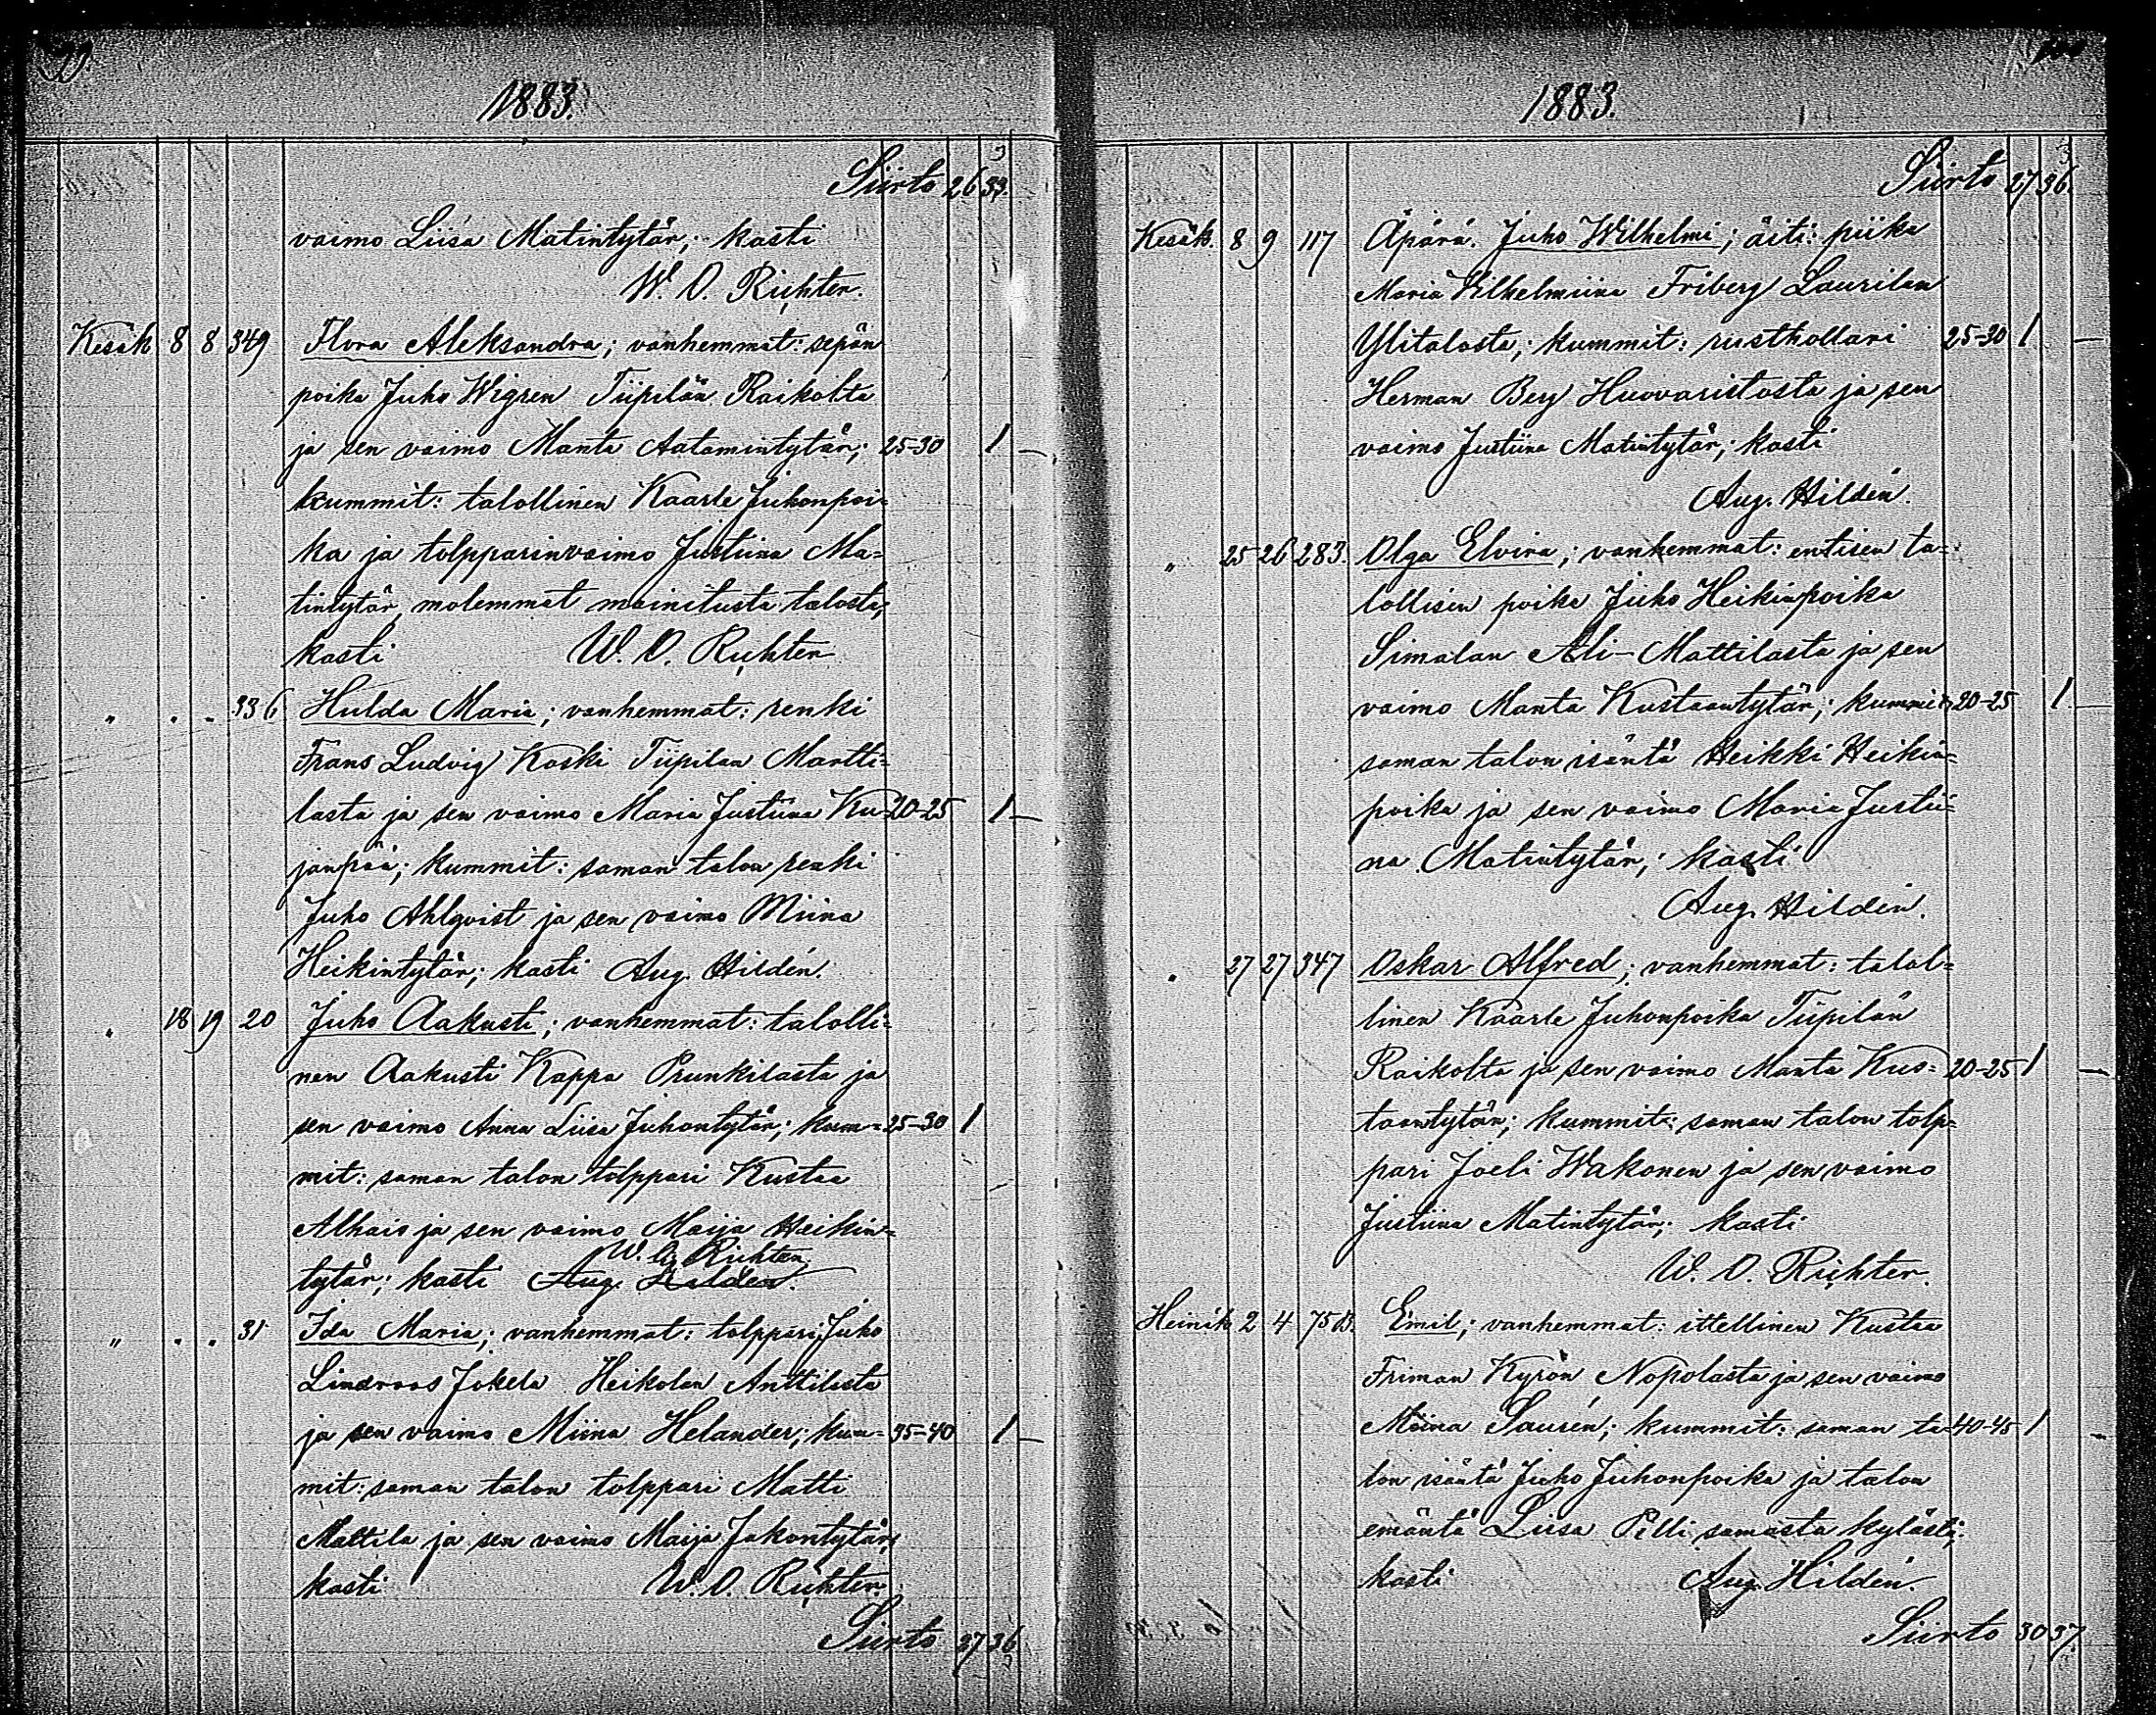 1883.
Siirto 26 33.
vaimo Liisa Matintytär; kasti
W. O. Richter.
Kesäk 8 8 349 Flora Aleksandra; vanhemmat: sepän
poika Juho Wigren Tiipilän Raikolta
ja sen vaimo Manta Aatamintytär; 25-30 1 —
kummit: talollinen Kaarle Juhonpoi=
ka ja tolpparinvaimo Justiina Ma=
tintytär, molemmat mainitusta talosta;
kasti W. O. Richter
„ . . 336 Hulda Maria; vanhemmat: renki
Frans Ludvig Koski Tiipilän Martti=
lasta ja sen vaimo Maria Justiina Ku= 20-25 1 —
janpää; kummit: saman talon renki
Juho Ahlqvist ja sen vaimo Miina
Heikintytär; kasti Aug. Hildén.
„ 18 19 20 Juho Aakusti; vanhemmat: talolli=
nen Aakusti Kappa Prunkilasta ja
sen vaimo Anna Liisa Juhontytär; kum= 25-30 1
mit: saman talon tolppari Kustaa
Alhais ja sen vaimo Maija Heikin=
W. O. Richter
tytär; kasti Aug. Hildén.
„ . . 31 Ida Maria; vanhemmat: tolppari Juho
Lindroos Jokela Heikolan Anttilasta
ja sen vaimo Miina Helander; kum= 35-40 1 —
mit: saman talon tolppari Matti
Mattila ja sen vaimo Maija Jakontytär;
kasti W. O. Richter.
Siirto 27 36
1883.
Siirto 27 36
Kesäk. 8 9 117 Äpärä. Juho Wilhelmi; äiti: piika
Maria Vilhelmiina Friberg Laurilan
Ylitalosta; kummit: rusthollari 25-30 1 —
Herman Bey Huovaristosta ja sen
vaimo Justiina Matintytär; kasti
Aug. Hildén.
„ 25 26 283. Olga Elvira; vanhemmat: entisen ta=
lollisen poika Juho Heikinpoika
Simalan Ali-Mattilasta ja sen
vaimo Manta Kustaantytär; kummit; 20-25 1. —
saman talon isäntä Heikki Heikin=
poika ja sen vaimo Maria Justii=
na Matintytär; kasti
Aug. Hildén.
„ 27 27 347 Oskar Alfred; vanhemmat: talol=
linen Kaarle Juhonpoika Tiipilän
Raikolta ja sen vaimo Manta Kus= 20-25 1 —
taantytär; kummit: saman talon tolp=
pari Joeli Wakonen ja sen vaimo
Justiina Matintytär; kasti
W. O. Richter.
Heinäk 2 4 75 B. Emil; vanhemmat: ittellinen Kustaa
Friman Kyrön Nopolasta ja sen vaimo
Miina Saurén; kummit: saman ta= 40-45 1 —
lon isäntä Juho Juhonpoika ja talon
emäntä Liisa Pilli samasta kylästä;
kasti Aug. Hildén.
Siirto 30 37.